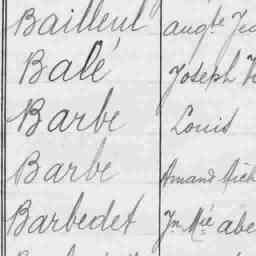 Bailleul augte
Balé Joseph
Barbe Louis
Barbe Amand
Barbedet Jn Mie